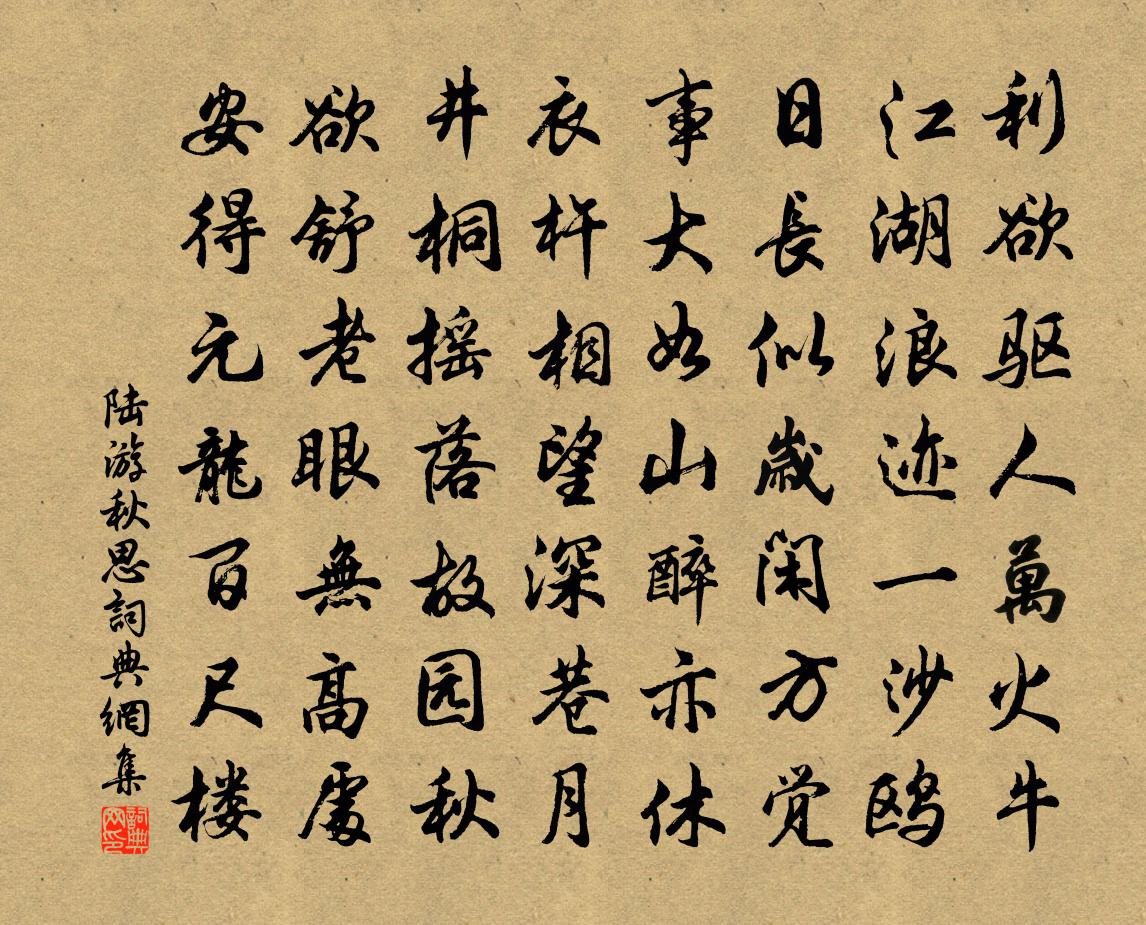 利欲驱人萬火牛
江湖浪迹一沙鸥
日長似歳闲方觉
事大如山醉亦休
衣杵相望深巷月
井桐摇落故园秋
欲舒老眼無高處
安得元龍百尺楼
陆游秋思詞典網集
詞典网印